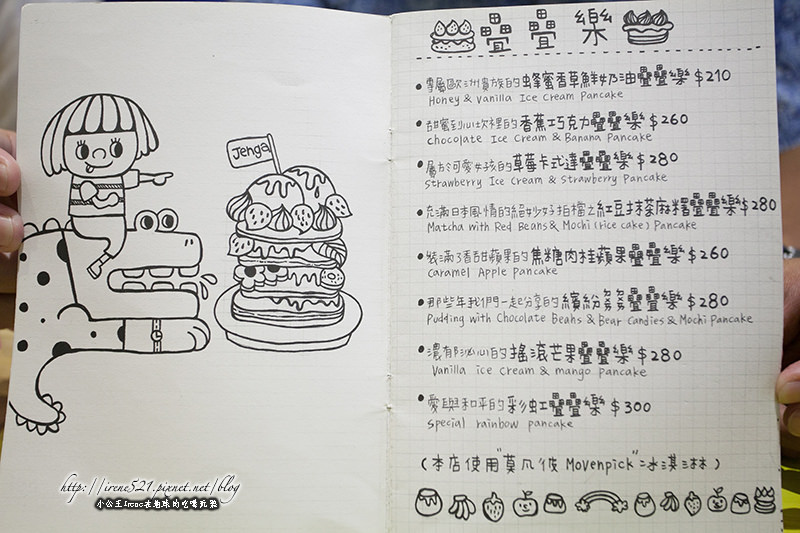 Jenga
疊疊樂
專屬歐洲貴族的蜂蜜香草鮮奶油疊疊樂 $210
Honey & Vanilla Ice Cream Pancake
甜蜜到心坎裡的香蕉巧克力疊疊樂 $260
chocolate Ice Cream & Banana Pancake
屬於可愛女孩的草莓卡式達疊疊樂 $280
Strawberry Ice Cream & Strawberry Pancake
充滿日本風情的絕妙好拍檔之紅豆抹茶麻糬疊疊樂 $280
Matcha with Red Beans & Mochi (rice cake) Pancake
裝滿了香甜蘋果的焦糖肉桂蘋果疊疊樂 $260
Caramel Apple Pancake
那些年我們一起分享的繽紛ㄉㄉ疊疊樂 $280
Pudding with Chocolate Beans & Bear Candies & Mochi Pancake
濃郁沁心的搖滾芒果疊疊樂 $280
Vanilla ice cream & mango pancake
愛與和平的彩虹疊疊樂 $300
Special rainbow pancake
(本店使用"莫凡彼 Movenpick"冰淇淋)
http://irene521.pixnet.net/blog
小公主Irene在地球的吃喝玩樂